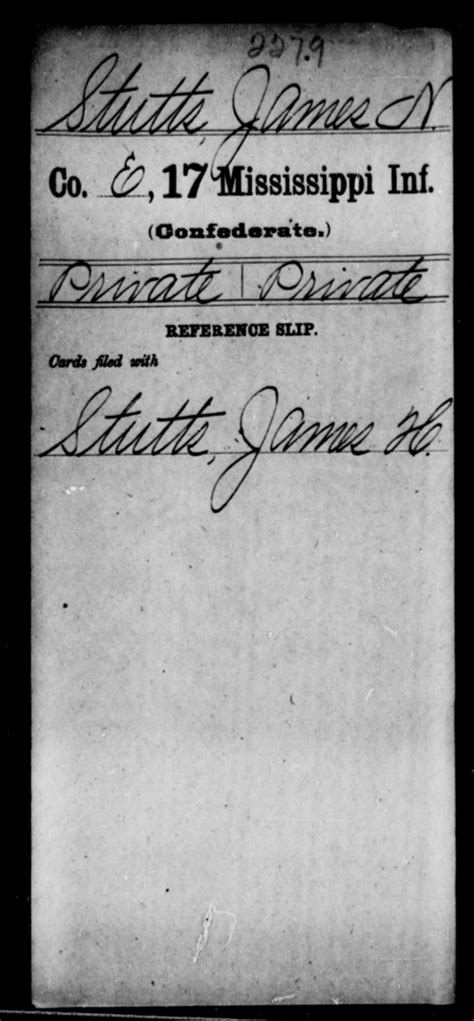 2279
Stutts, James N.
Co. E, 17 Mississippi Inf.
(Confederate.)
Private | Private
REFERENCE SLIP.
Cards filed with
Stutts, James H.